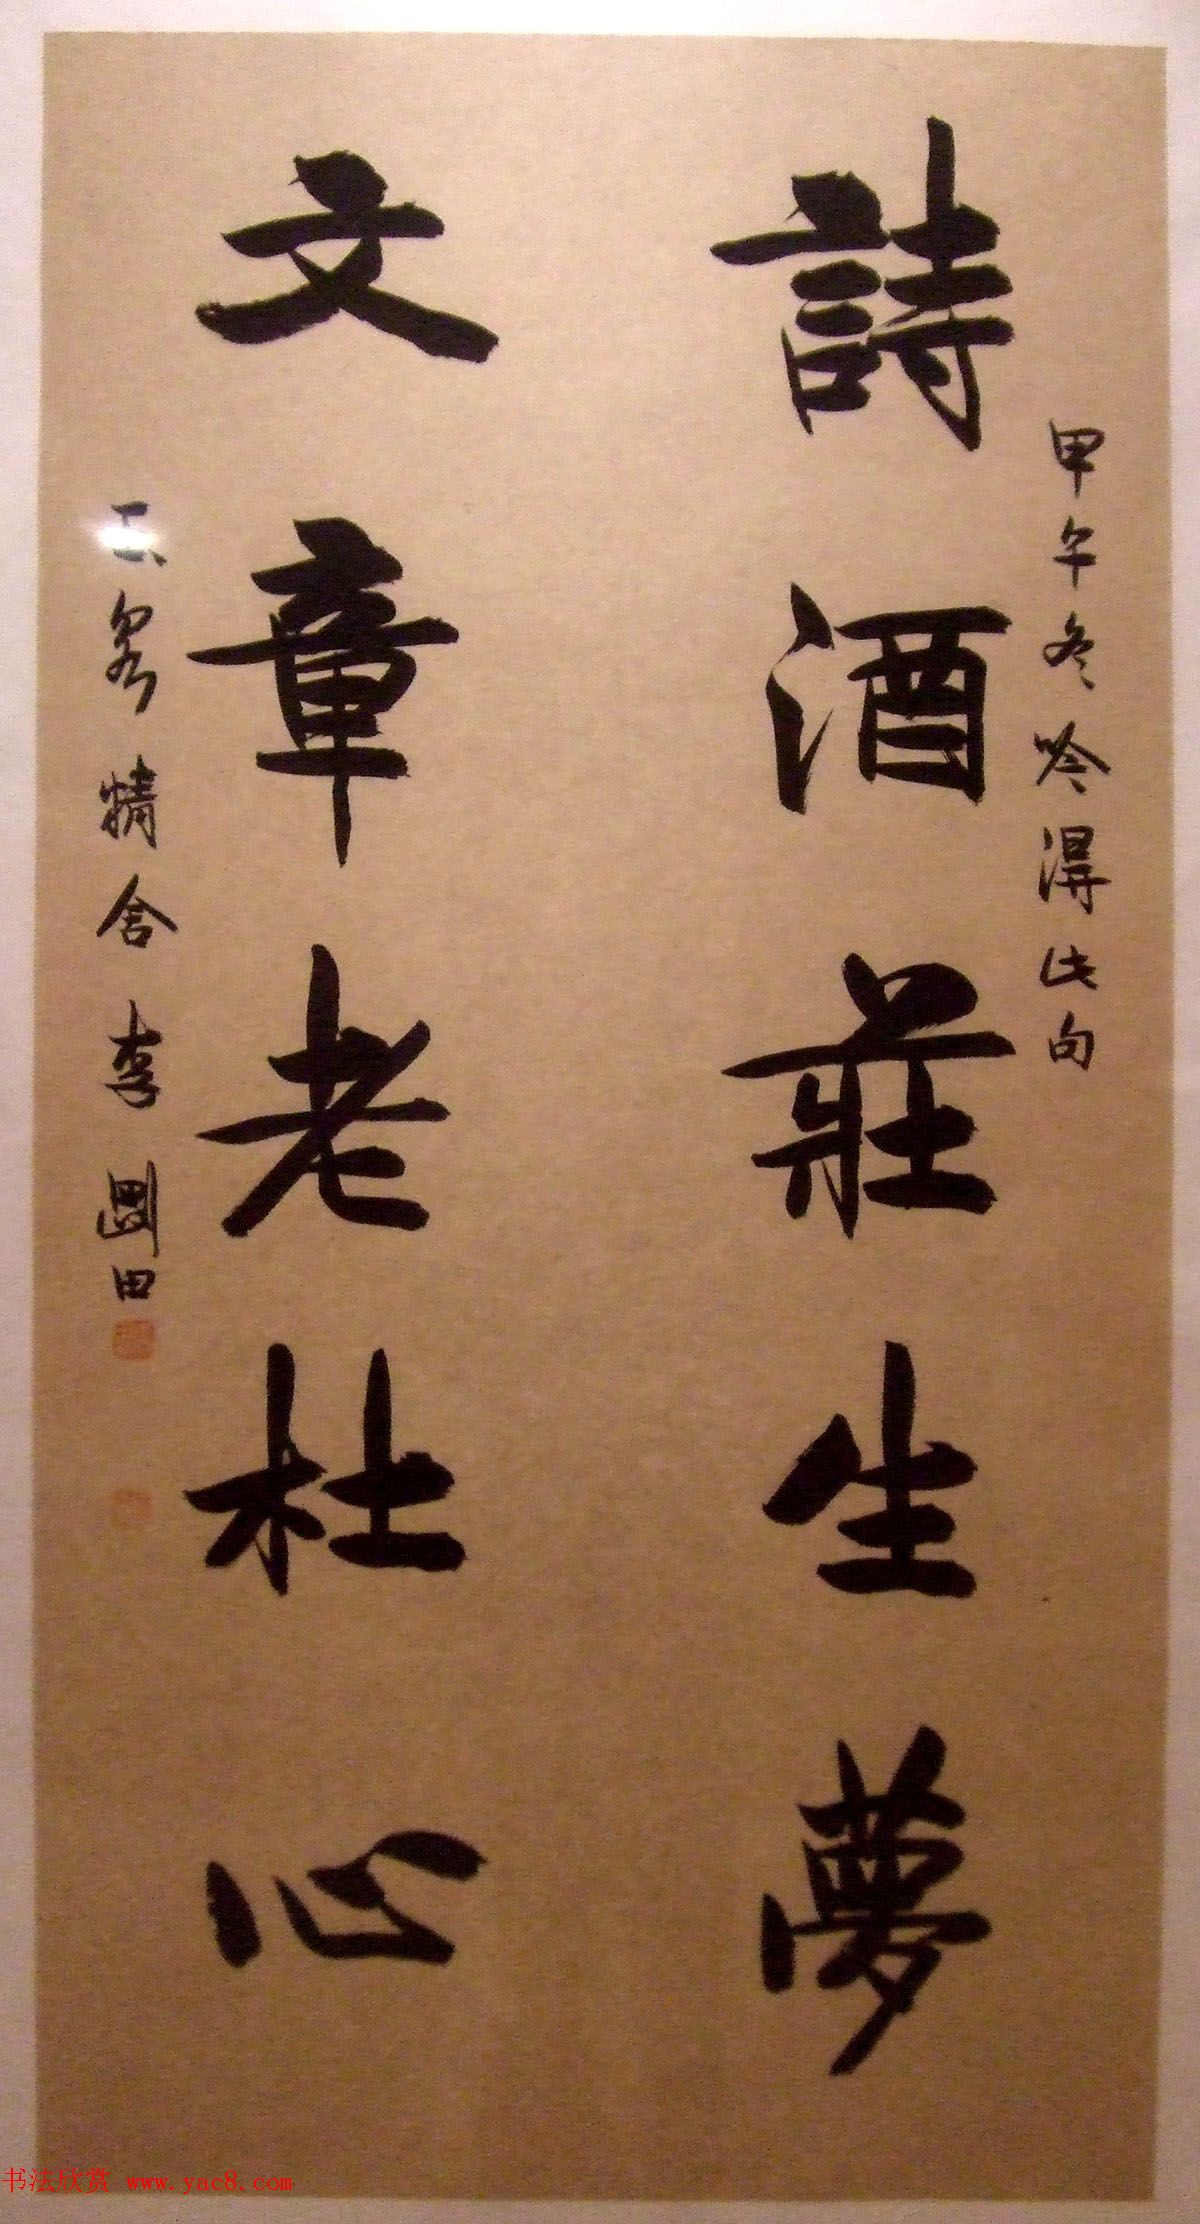 甲午冬吟得此句
詩酒莊生夢
文章老杜心
玉泉精舍李圃田
书法欣赏 www.yac8.com